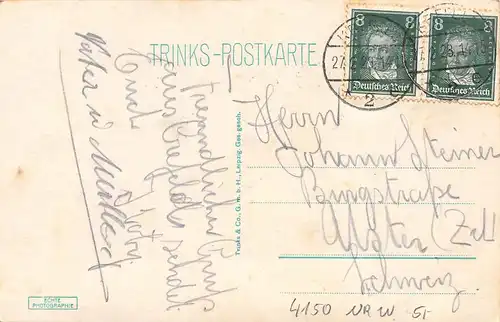 TRINKS-POSTKARTE
8 8
Deutsches Reich
8 8
Deutsches Reich
2
Trinks & Co., G. m. b. H., Leipzig. Ges. gesch.
Freundlichen Gruß
aus Crefeld sendet
Euch
Vater u Mutter
Herrn
Johann Steiner
Burgstraße
Uster (Zch)
Schweiz.
ECHTE
PHOTOGRAPHIE
4150 NRW 5.-